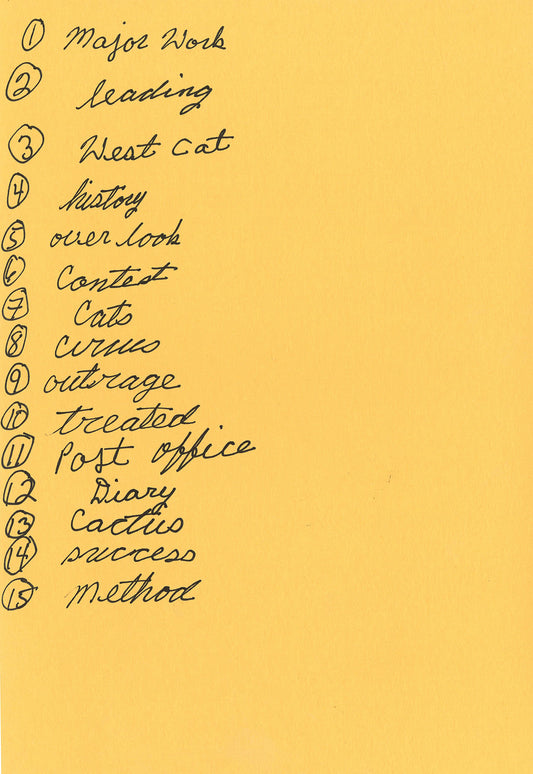 1 Major Work
2 leading
3 West Cat
4 history
5 over look
6 Contest
7 Cats
8 cirrus
9 outrage
10 treated
11 Post office
12 Diary
13 Cactus
14 success
15 Method